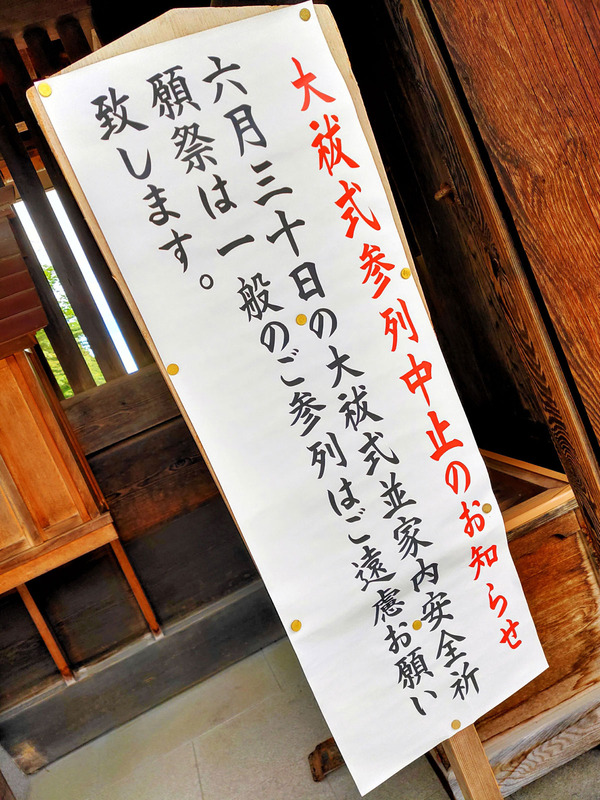 大祓式参列中止のお知らせ
六月三十日の大祓式並家内安全祈
願祭は一般のご参列はご遠慮お願い
致します。